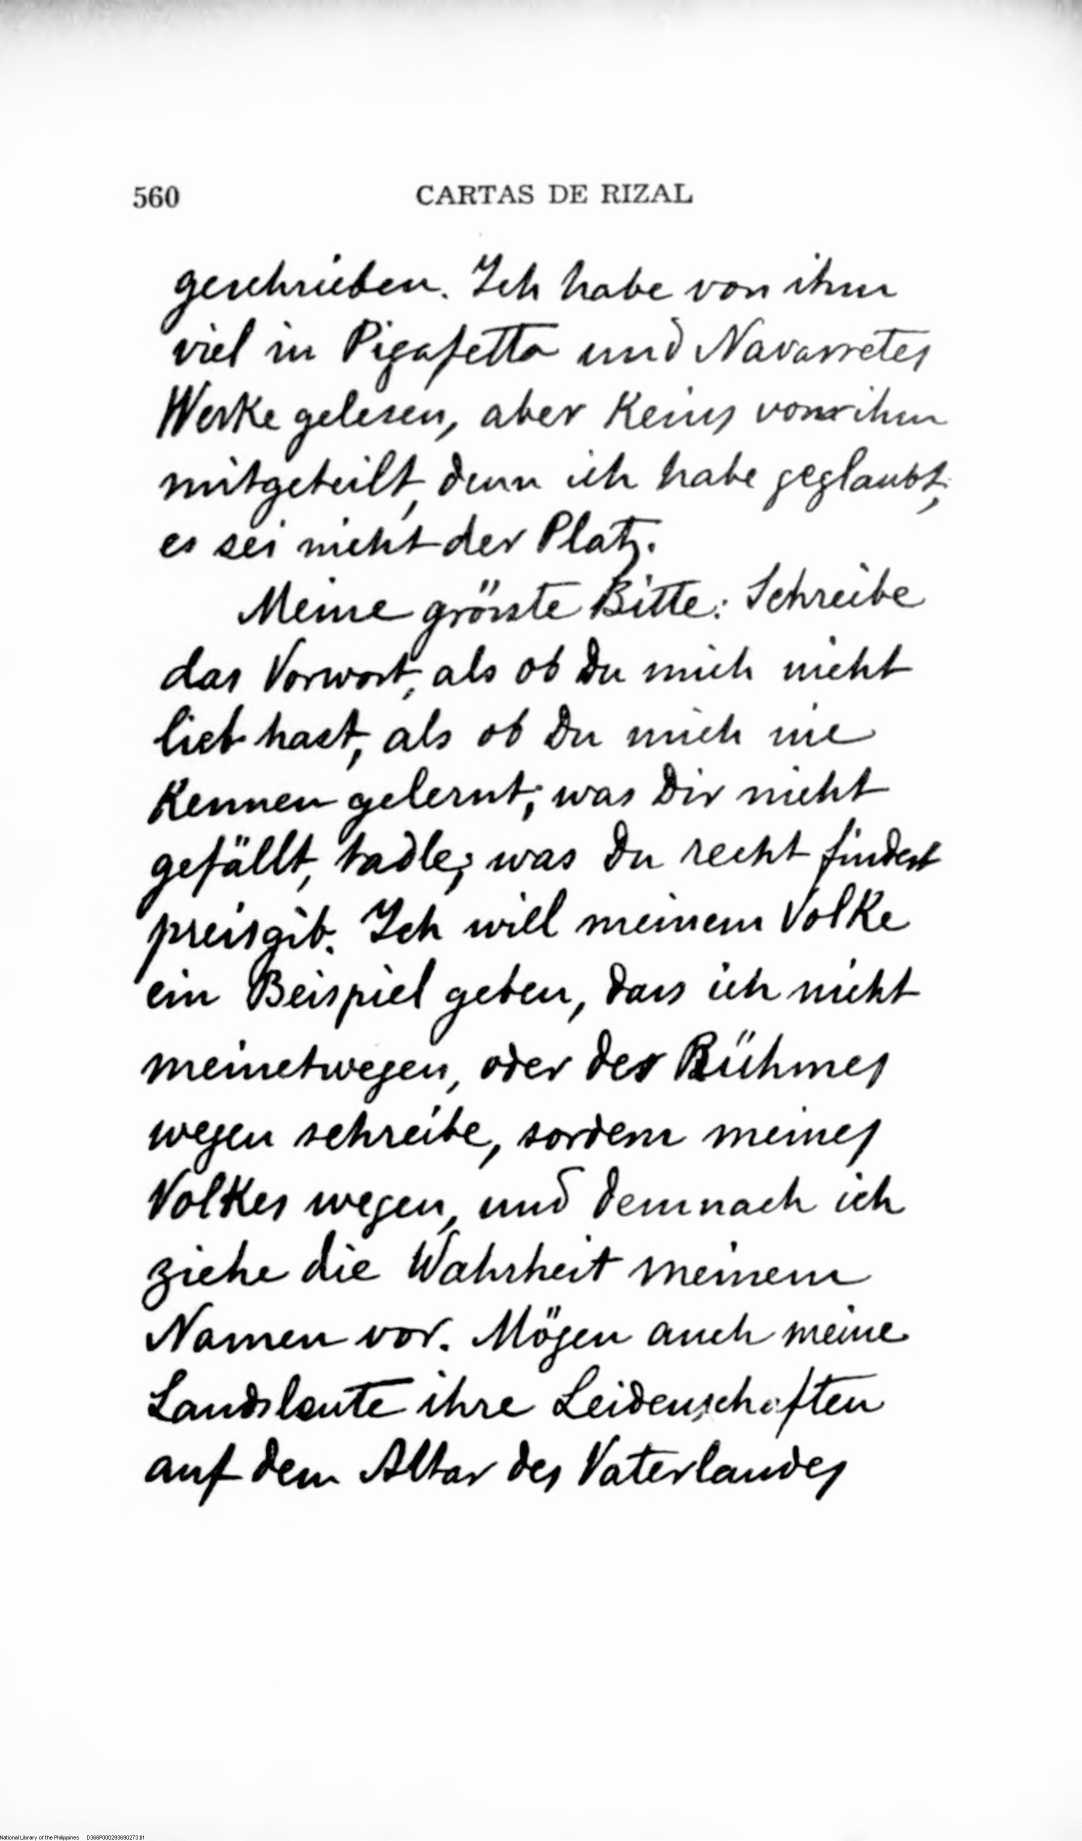 560 CARTAS DE RIZAL
geschrieben. Ich habe von ihm
viel in Pigafetta und Navarretes
Werke gelesen, aber Keins von ihm
mitgeteilt, denn ich habe geglaubt,
es sei nicht der Platz.
Meine grösste Bitte: Schreibe
das Vorwort, als ob Du mich nicht
lieb hast, als ob Du mich nie
Kennen gelernt; was Dir nicht
gefällt, tadle; was Du recht findest
preisgib. Ich will meinem Volke
ein Beispiel geben, dass ich nicht
meinetwegen, oder des Rühmes
wegen schreibe, sordern meines
Volkes wegen, und demnach ich
ziehe die Wahrheit meinem
Namen vor. Mögen auch meine
Landsleute ihre Leidenschaften
auf dem Altar des Vaterlandes
National Library of the Philippines